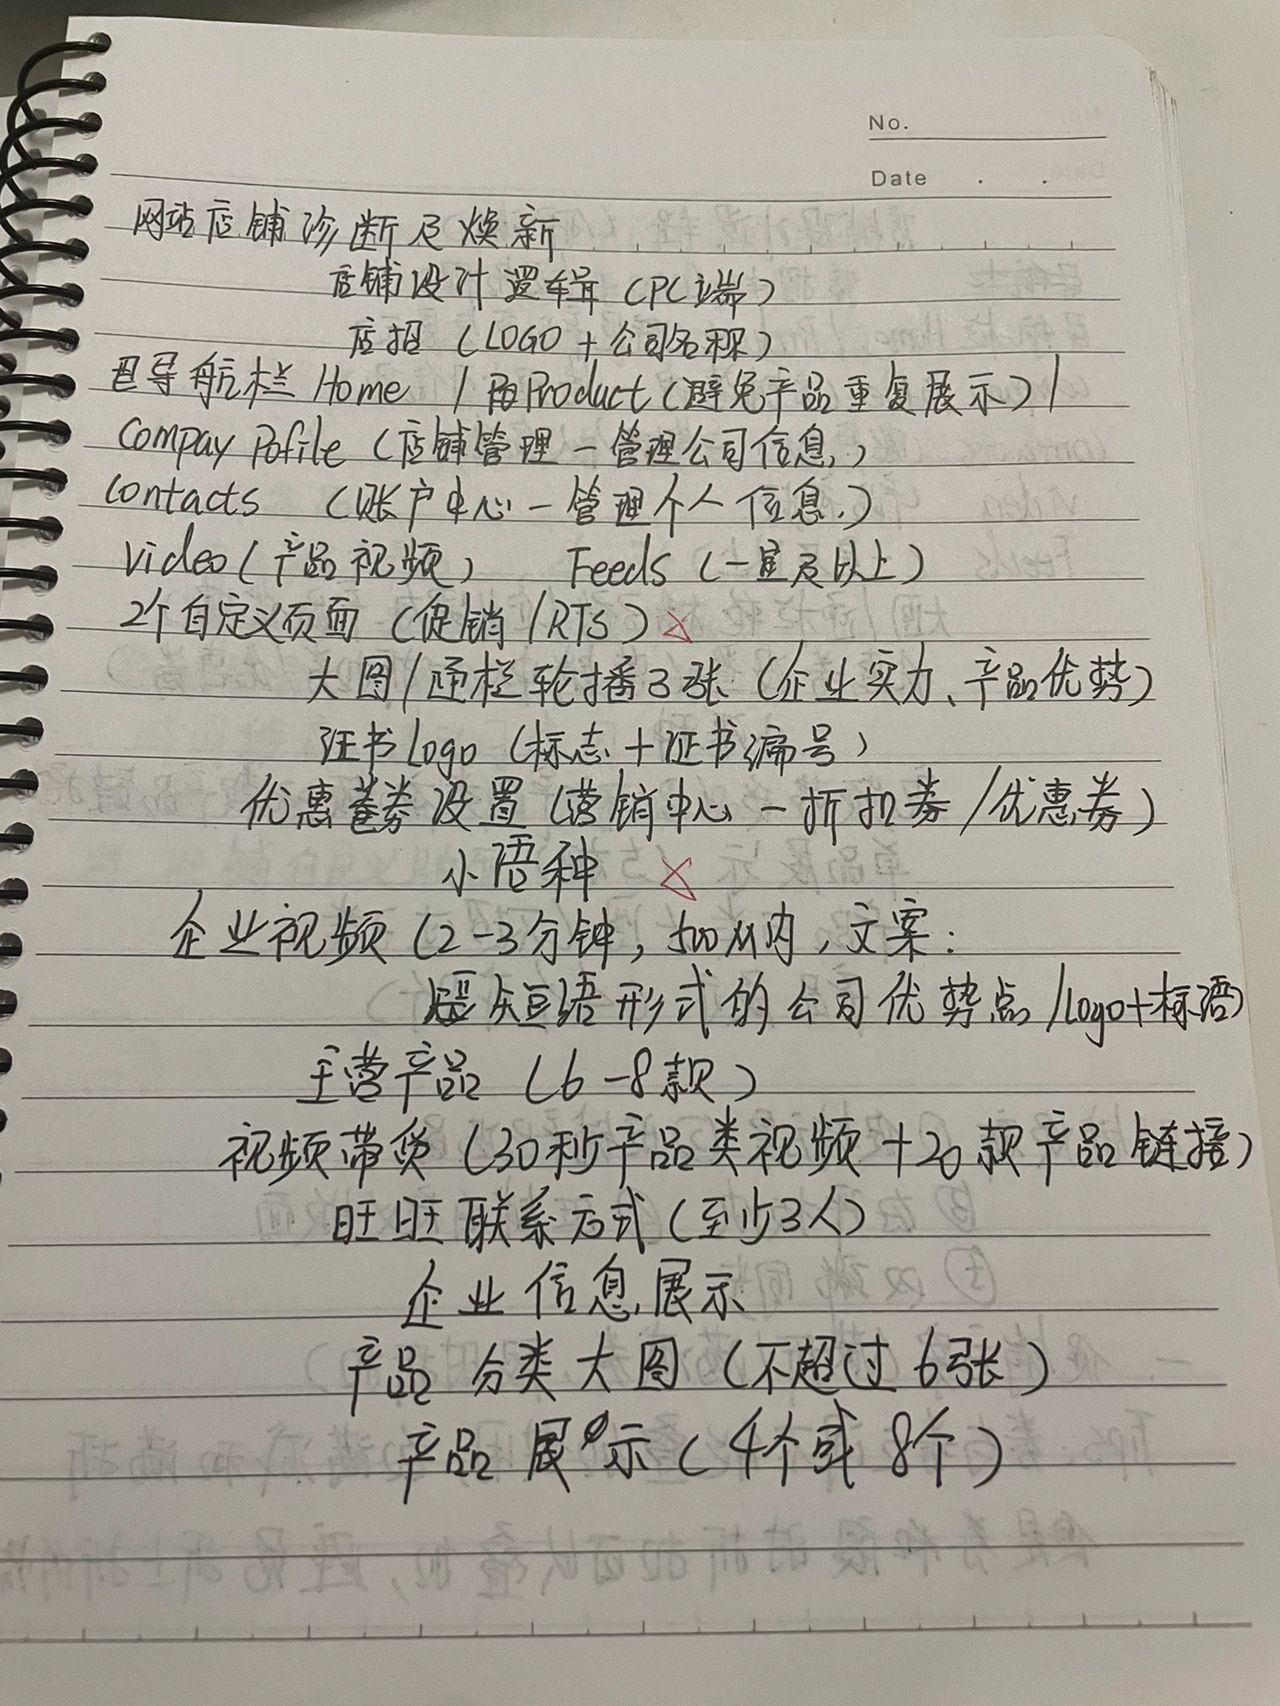 No.
Date . .
网站店铺诊断及焕新
店铺设计逻辑（PC端）
店招（LOGO + 公司名称）
导航栏 Home / Product（避免产品重复展示）/
Compay Pofile（店铺管理－管理公司信息）
Contacts （账户中心－管理个人信息）
Video（产品视频） Feeds（一星及以上）
2个自定义页面（促销/RTS）×
大图/通栏轮播3张（企业实力、产品优势）
证书logo（标志＋证书编号）
优惠券设置（营销中心－折扣券/优惠券）
小语种 ×
企业视频（2-3分钟，500M内，文案：
短语形式的公司优势点/logo+标语）
主营产品（6-8款）
视频带货（30秒产品类视频＋20款产品链接）
旺旺联系方式（至少3人）
企业信息展示
产品分类大图（不超过6张）
产品展示（4个或8个）